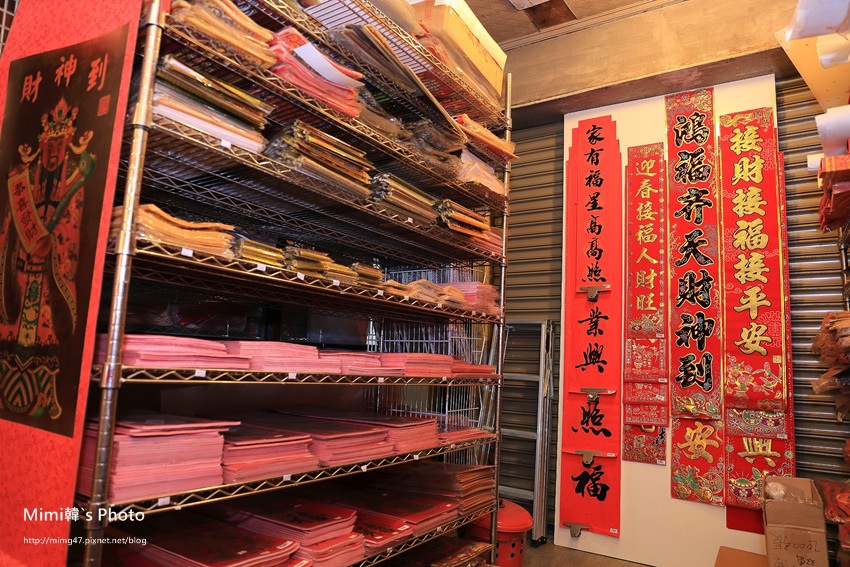 財神到
恭喜發財
家有福星高高照
業興
照
福
迎春接福人財旺
鴻福齊天財神到
安
接財接福接平安
興
Mimi韓`s Photo
http://mimg47.pixnet.net/blog